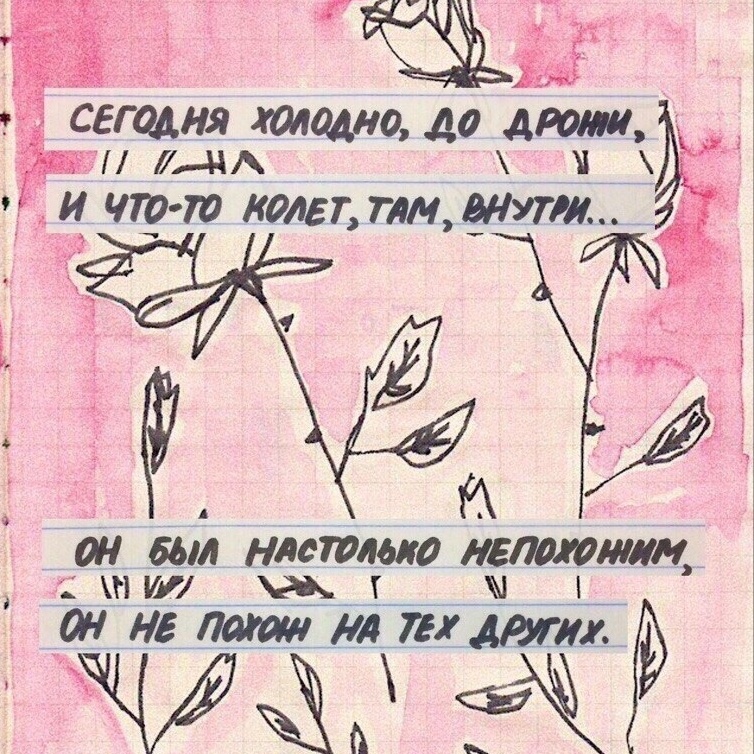 СЕГОДНЯ ХОЛОДНО, ДО ДРОЖИ,
И ЧТО-ТО КОЛЕТ, ТАМ, ВНУТРИ...
ОН БЫЛ НАСТОЛЬКО НЕПОХОЖИМ,
ОН НЕ ПОХОЖ НА ТЕХ ДРУГИХ.